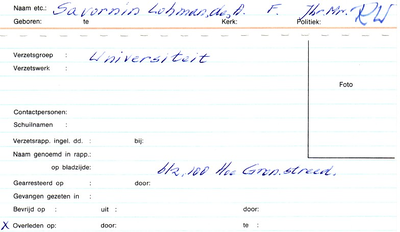 Naam etc.: Savornin Lohman, de, A. F. Jhr. Mr. RW
Geboren: te Kerk: Politiek:
Verzetsgroep : Universiteit
Verzetswerk :
Foto
Contactpersonen:
Schuilnamen :
Verzetsrapp. ingel. dd. : bij:
Naam genoemd in rapp.:
op bladzijde: blz, 100 Hoe Gron. streed.
Gearresteerd op : door:
Gevangen gezeten in :
Bevrijd op : uit : door:
X Overleden op: door: te :